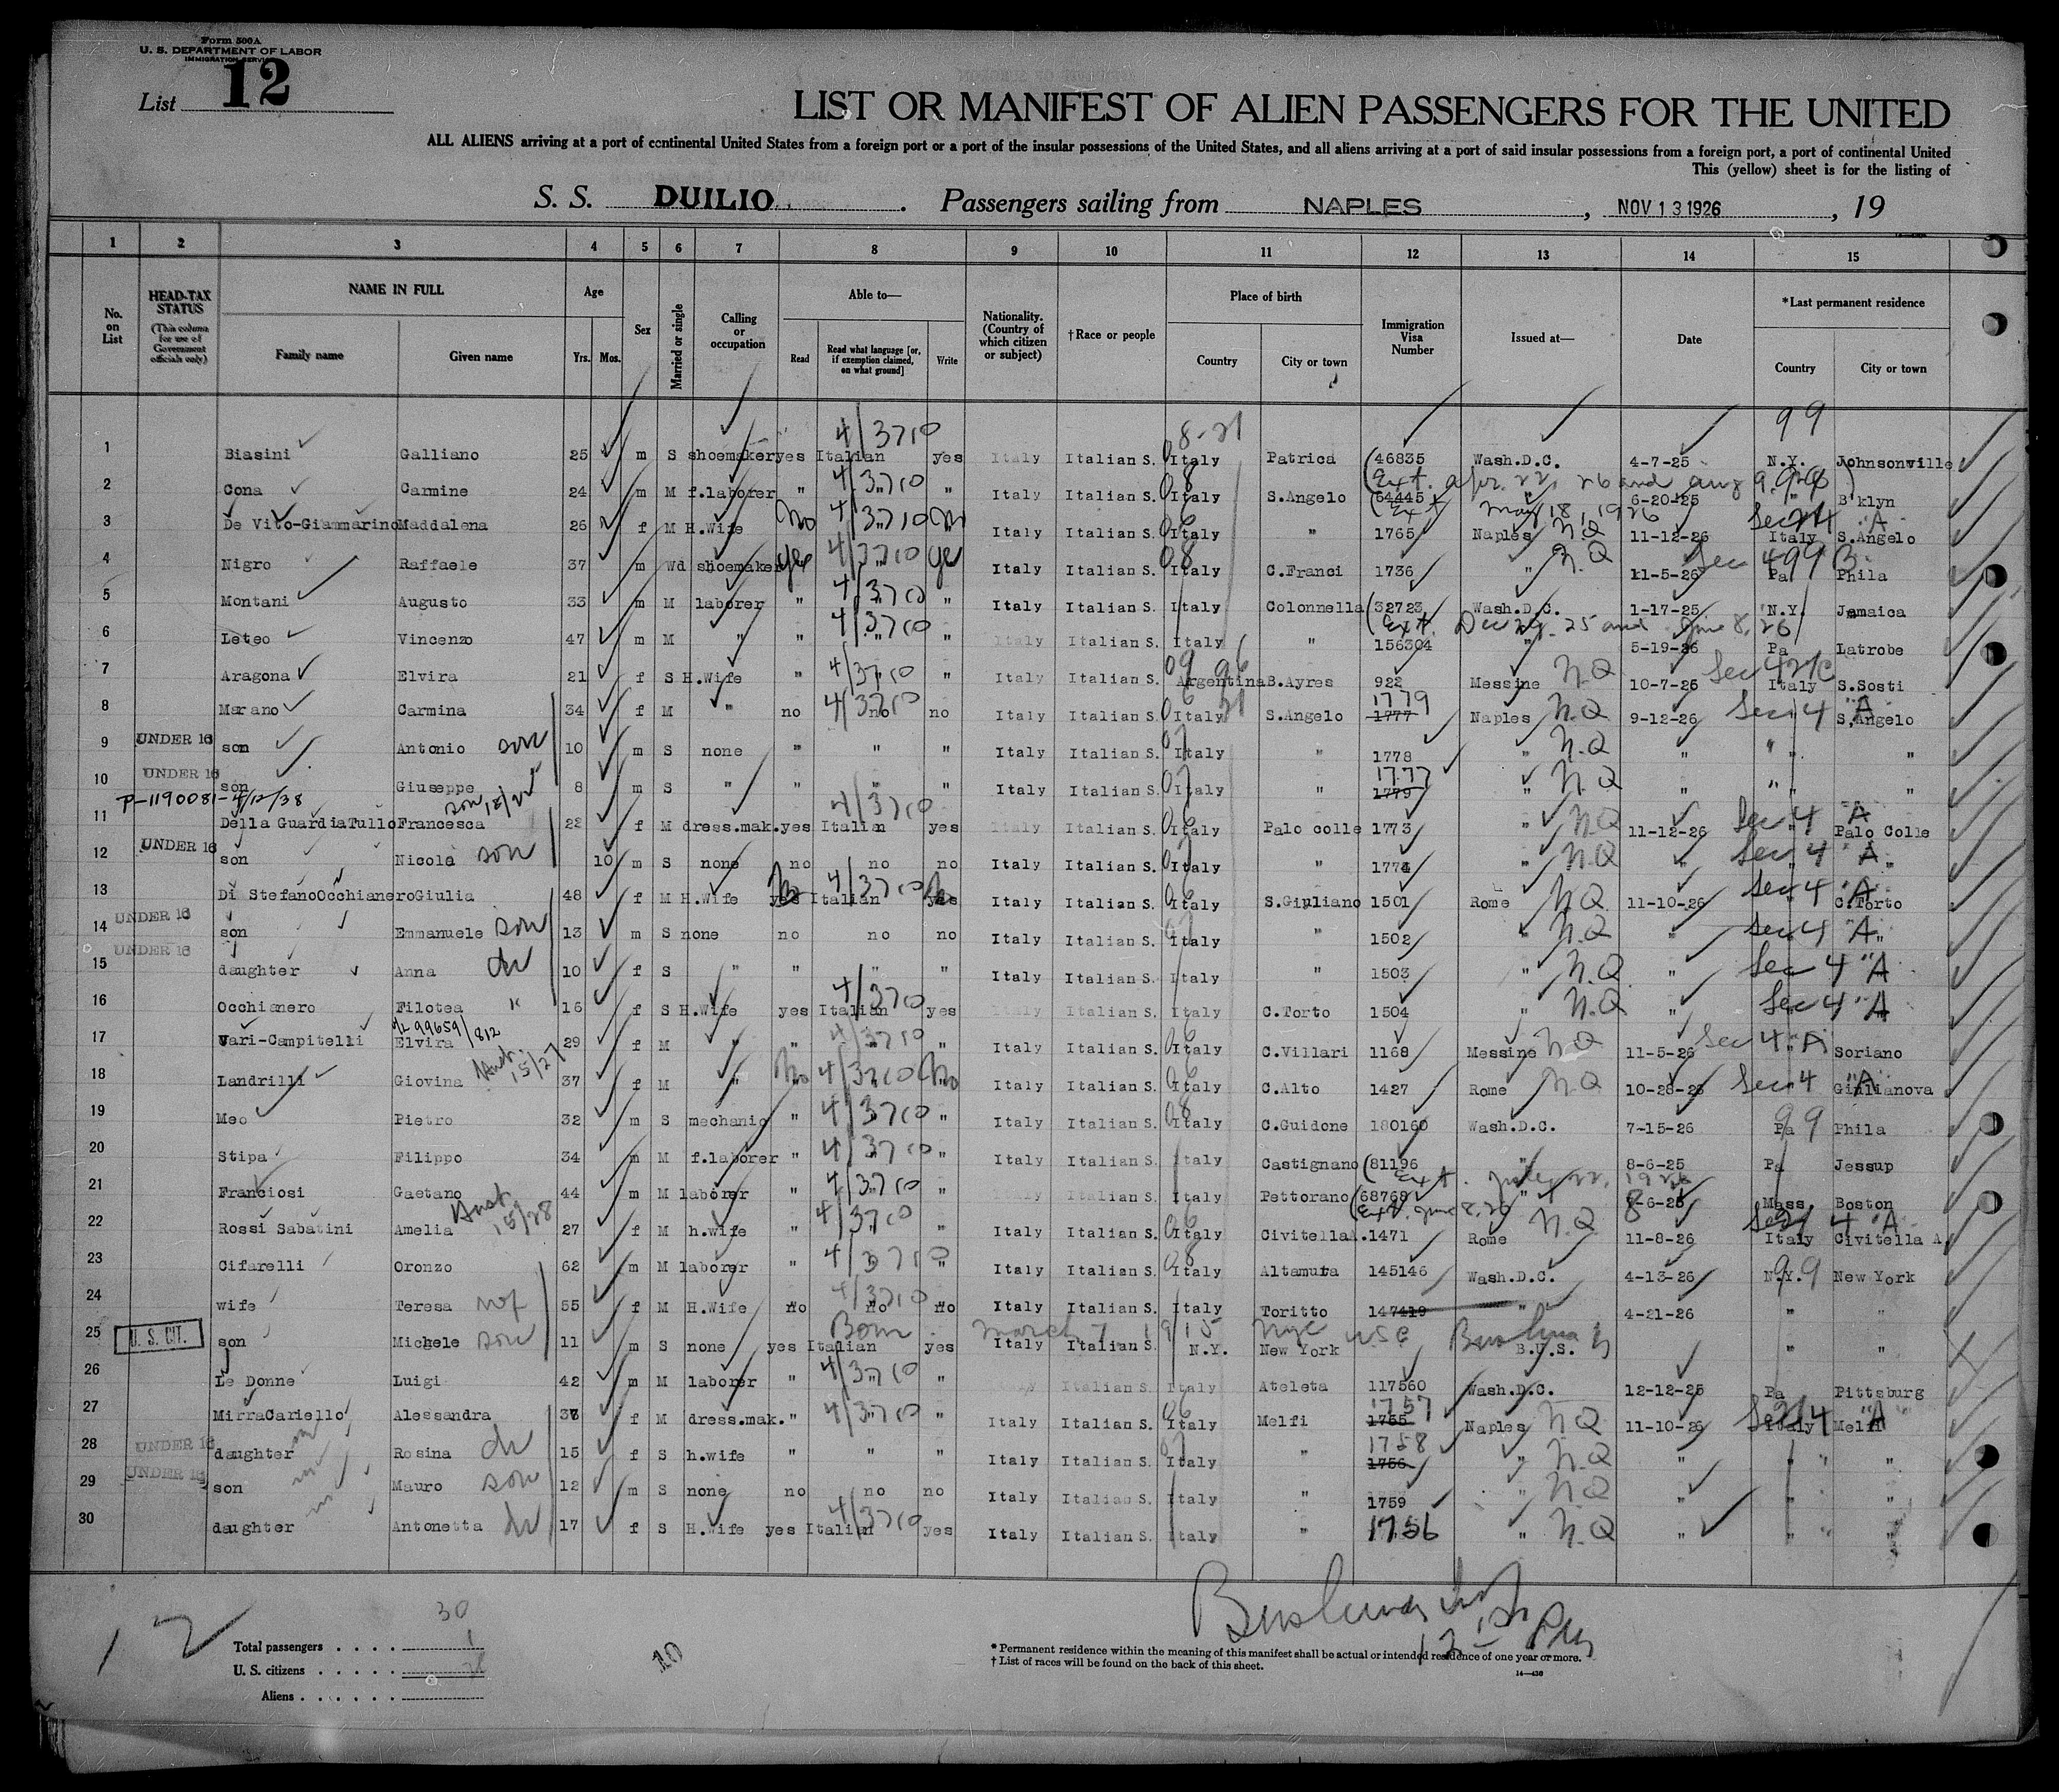 Form 500A
U. S. DEPARTMENT OF LABOR
IMMIGRATION SERVICE
List 12
LIST OR MANIFEST OF ALIEN PASSENGERS FOR THE UNITED
ALL ALIENS arriving at a port of continental United States from a foreign port or a port of the insular possessions of the United States, and all aliens arriving at a port of said insular possessions from a foreign port, a port of continental United
This (yellow) sheet is for the listing of
S. S. DUILIO. Passengers sailing from NAPLES, NOV 13 1926, 19
1 2 3 4 5 6 7 8 9 10 11 12 13 14 15
No. on List
HEAD-TAX STATUS (This column for use of Government officials only)
NAME IN FULL Family name Given name
Age Yrs. Mos.
Sex
Married or single
Calling or occupation
Able to— Read Read what language [or, if exemption claimed, on what ground] Write
Nationality. (Country of which citizen or subject)
†Race or people
Place of birth Country City or town
Immigration Visa Number
Issued at—
Date
*Last permanent residence Country City or town
4/3710 8-21 99
1 Biasini Galliano 25 m S shoemaker yes Italian yes Italy Italian S. Italy Patrica (46835 Wash.D.C. 4-7-25 N.Y. Johnsonville
4/3710 08 (Ext. apr. 22, 26 and aug 9, 26)
2 Cona Carmine 24 m M f.laborer " " " Italy Italian S. Italy S.Angelo (64445 " 6-20-25 " B'klyn
4/3710 Ext May 18, 1926 Sec 4 "A"
3 De Vito-Giammarino Maddalena 26 f M H.Wife No " No Italy Italian S. Italy " 1765 Naples N.Q 11-12-26 Italy S.Angelo
4/3710 08 N.Q Sec 4 99 B
4 Nigro Raffaele 37 m Wd shoemaker yes " ye Italy Italian S. Italy C.Franci 1736 " 11-5-26 Pa Phila
4/3710
5 Montani Augusto 33 m M laborer " " " Italy Italian S. Italy Colonnella (32723 Wash.D.C. 1-17-25 N.Y. Jamaica
4/3710 Ext. Dec 29. 25 and June 8, 26
6 Leteo Vincenzo 47 m M " " " " Italy Italian S. Italy " 156304 " 5-19-26 Pa Latrobe
4/3710 09 96 Sec 4 2/c
7 Aragona Elvira 21 f S H.Wife " " " Italy Italian S. Argentina B.Ayres 922 Messine N.Q 10-7-26 Italy S.Sosti
4/3710 1779 Sec 4 "A"
8 Marano Carmina 34 f M " no no no Italy Italian S. Italy S.Angelo 1777 Naples N.Q 9-12-26 " S.Angelo
9 UNDER 16 son Antonio son 10 m S none " " " Italy Italian S. Italy " 1778 " N.Q " " "
1777
10 UNDER 16 son Giuseppe 8 m S " " " " Italy Italian S. Italy " 1779 " N.Q " " "
P-1190081-4/12/38
4/3710 Sec 4 A
11 Della GuardiaTullo Francesca 22 f M dress.mak. yes Italian yes Italy Italian S. Italy Palo colle 1773 " N.Q 11-12-26 " Palo Colle
12 UNDER 16 son Nicola son 10 m S none no no no Italy Italian S. Italy " 1774 " N.Q " Sec 4 "A"
13 Di StefanoOcchianero Giulia 48 f M H.Wife yes No 4/3710 Italian yes No Italy Italian S. Italy S.Giuliano 1501 Rome N.Q 11-10-26 Sec 4 "A" C.Torto
14 UNDER 16 son Emmanuele son 13 m S none no no no Italy Italian S. Italy " 1502 " N.Q " Sec 4 "A"
15 UNDER 16 daughter Anna da 10 f S " " " " Italy Italian S. Italy " 1503 " N.Q " Sec 4 "A"
16 Occhianero Filotea " 16 f S H.Wife yes 4/3710 Italian yes Italy Italian S. Italy C.Torto 1504 " N.Q " Sec 4 "A"
99659/812
17 Vari-Campitelli Elvira 29 f M " " 4/3710 " Italy Italian S. Italy C.Villari 1168 Messine N.Q 11-5-26 Sec 4 "A" Soriano
15/27
18 Landrilli Giovina 37 f M " No 4/3710 No Italy Italian S. Italy C.Alto 1427 Rome N.Q 10-28-26 Sec 4 "A" Giulianova
19 Meo Pietro 32 m S mechanic " 4/3710 " Italy Italian S. 08 Italy C.Guidone 180160 Wash.D.C. 7-15-26 99 Pa Phila
20 Stipa Filippo 34 m M f.laborer " 4/3710 " Italy Italian S. Italy Castignano (81196 " 8-6-25 Pa Jessup
Ext. July 22, 1926
21 Franciosi Gaetano 44 m M laborer " 4/3710 " Italy Italian S. Italy Pettorano (68768 " 8-6-25 Mass Boston
15/28 Ext. June 8, 26
22 Rossi Sabatini Amelia 27 f M h.wife " 4/3710 " Italy Italian S. Italy CivitellaA. 1471 Rome N.Q 11-8-26 Sec 4 "A" Italy Civitella A.
23 Cifarelli Oronzo 62 m M laborer " 4/3710 " Italy Italian S. 08 Italy Altamura 145146 Wash.D.C. 4-13-26 99 N.Y. New York
24 wife Teresa wf 55 f M H.Wife no 4/3710 no no Italy Italian S. Italy Toritto 147419 " 4-21-26 " "
Born March 7 1915 Nyc USC
25 U. S. CIT. son Michele son 11 m S none yes Italian yes Italy Italian S. N.Y. New York B.U.S. " "
26 Le Donne Luigi 42 m M laborer " 4/3710 " Italy Italian S. Italy Ateleta 117560 Wash.D.C. 12-12-25 Pa Pittsburg
1757
27 MirraCariello Alessandra 38 f M dress.mak. " 4/3710 " Italy Italian S. 06 Italy Melfi 1755 Naples N.Q 11-10-26 Sec 4 "A" Italy Melfi
1758
28 UNDER 16 daughter Rosina da 15 f S h.wife " " " Italy Italian S. Italy " 1756 " N.Q " " "
29 UNDER 16 son Mauro son 12 m S none no no no Italy Italian S. Italy " 1759 " N.Q " " "
30 daughter Antonetta da 17 f S H.Wife yes 4/3710 Italian yes Italy Italian S. Italy " 1756 " N.Q " " "
12
Total passengers . . . . 30
U. S. citizens . . . . . 1
Aliens . . . . . .
10
* Permanent residence within the meaning of this manifest shall be actual or intended residence of one year or more.
† List of races will be found on the back of this sheet.
14—436